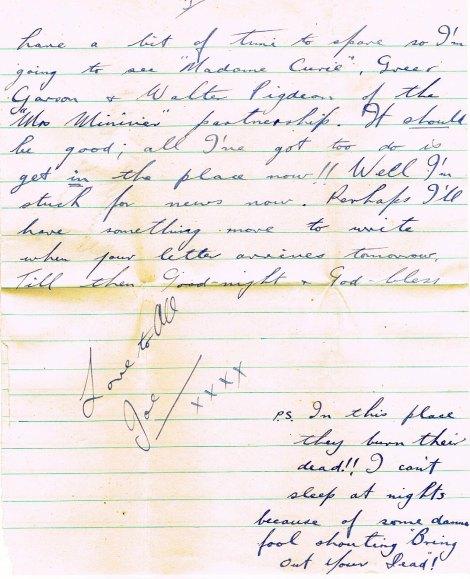 have a bit of time to spare so I'm
going to see "Madame Curie", Greer
Garson & Walter Pigdeon of the
"Mrs Miniver" partnership. It should
be good; all I've got too do is
get in the place now!! Well I'm
stuck for news now. Perhaps I'll
have something more to write
when your letter arrives tomorrow,
Till then Good-night & God-bless
Love to All
Joe
xxxx
P.S. In this place
they burn their
dead!! I can't
sleep at nights
because of some damn
fool shouting "Bring
out your Dead"!